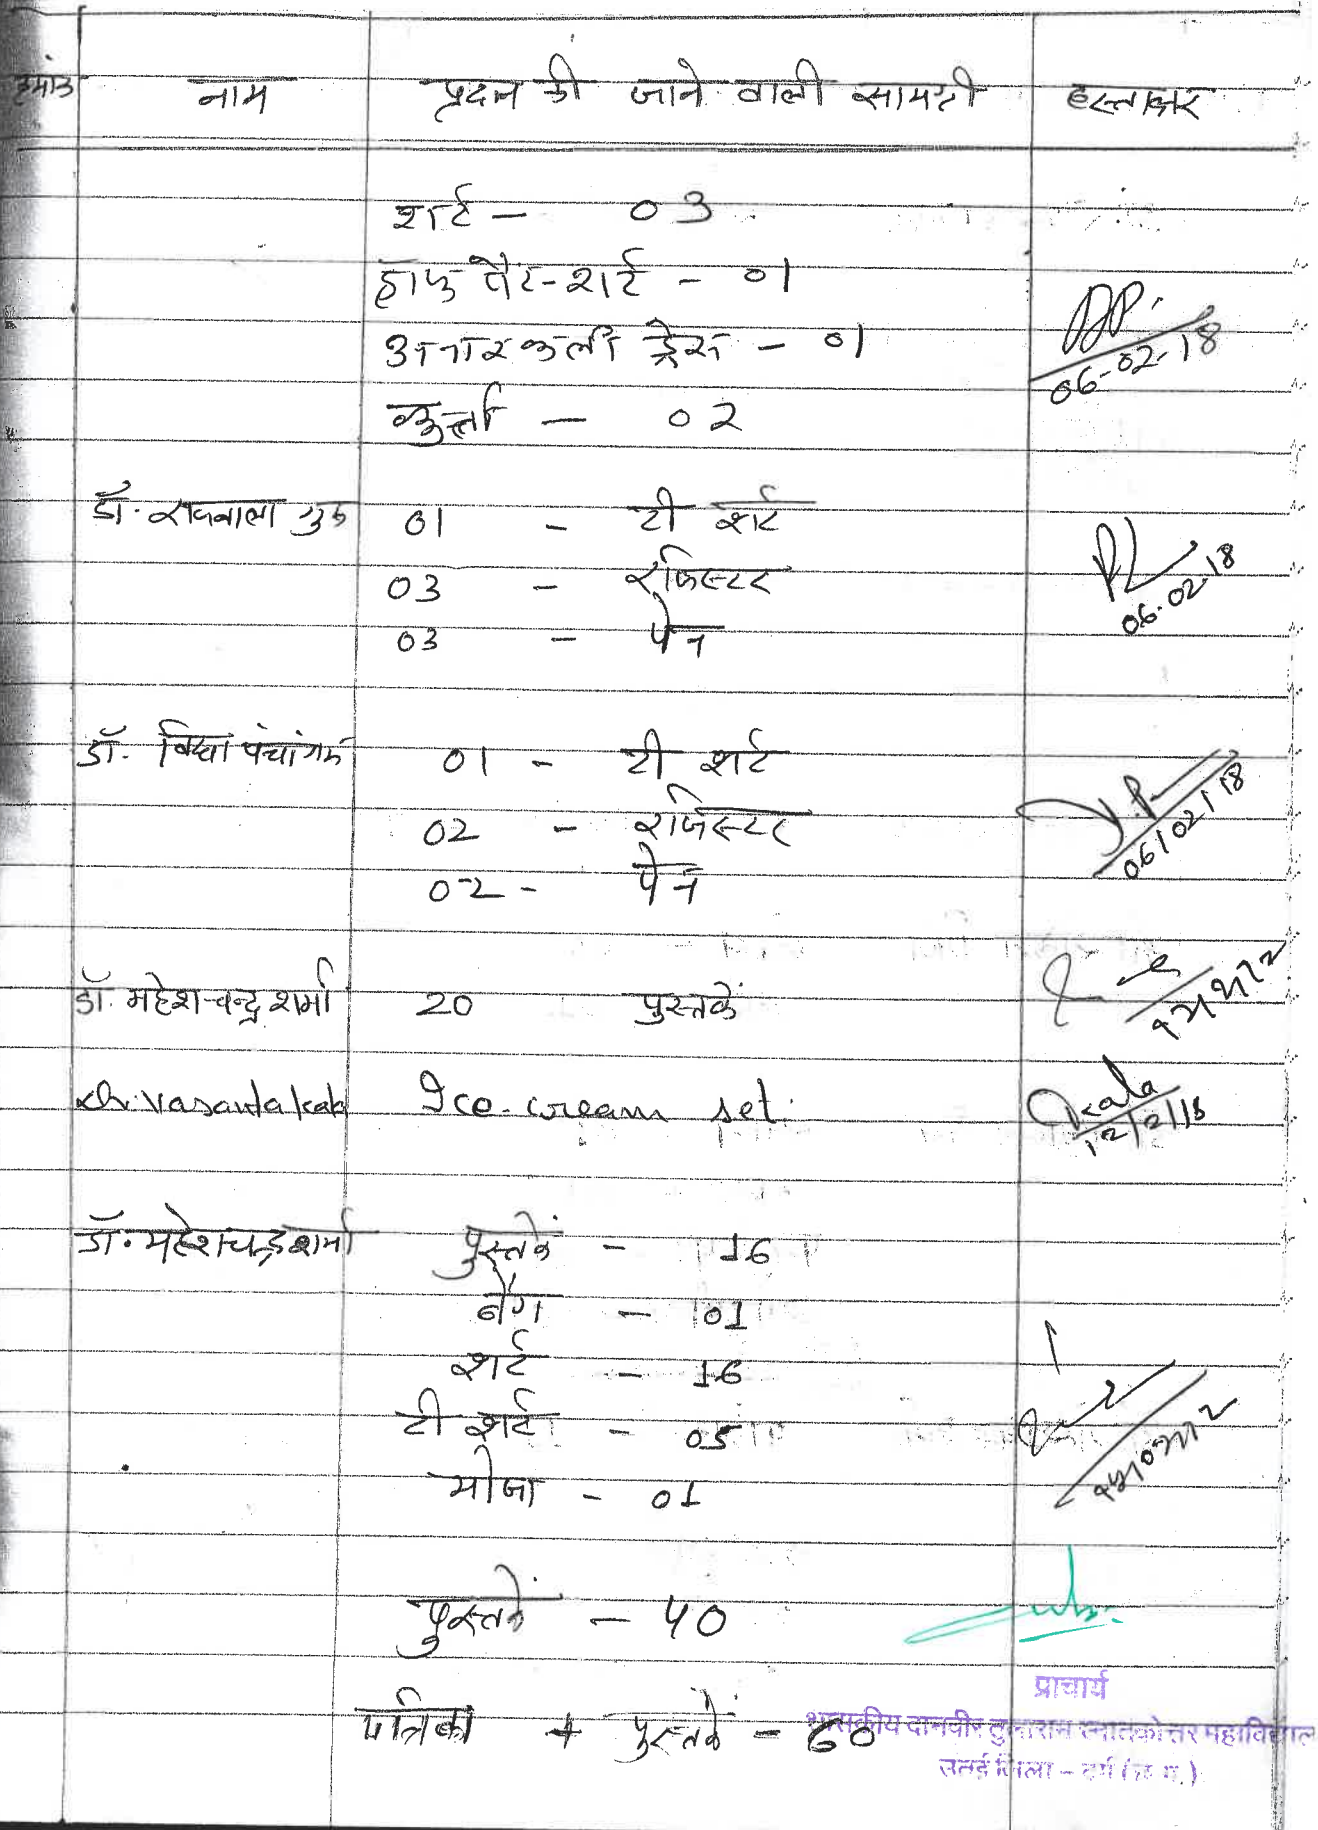 क्रमांक नाम प्रदान की जाने वाली सामग्री हस्ताक्षर
शर्ट - 03
हॉफ पैंट-शर्ट - 01
अनारकली ड्रेस - 01
कुर्त्ता - 02
06-02-18
डॉ. राजबाला गुरु 01 - टी शर्ट
03 - रजिस्टर
03 - पेन
06.02.18
डॉ. विद्या पंचांगम 01 - टी शर्ट
02 - रजिस्टर
02 - पेन
06/02/18
डॉ. महेशचन्द्र शर्मा 20 पुस्तकें
Dr. Vasantakala Ice-cream set.
Kala
12/2/18
डॉ. महेशचन्द्र शर्मा पुस्तकें - 16
बैग - 01
शर्ट - 16
टी शर्ट - 05
मोजा - 01
पुस्तकें - 40
पत्रिका + पुस्तकें - 60
प्राचार्य
शासकीय दानवीर तुलाराम स्नातकोत्तर महाविद्याल
उतई जिला - दुर्ग (छ.ग.)